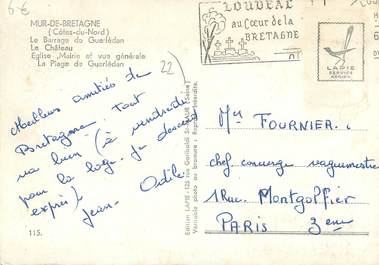 6€
MUR-DE-BRETAGNE
(Côtes-du-Nord)
Le Barrage de Guerlédan
Le Château
Église, Mairie et vue générale
La Plage de Guerlédan
22)
Meilleures amitiés de
Bretagne. Tout
va bien (à vendredi
pour la loge. Je descend
exprès).
Jean. Odile.
115.
Edition LAPIE - 125 rue Garibaldi St-MAUR (Seine)
Véritable photo au bromure - Reproduction Interdite.
LOUDÉAC
au Cœur de la
BRETAGNE
LAPIE
SERVICE
AÉRIEN
Mr FOURNIER.
chef concierge vaguemestre
1 Rue Montgolfier
PARIS 3eme